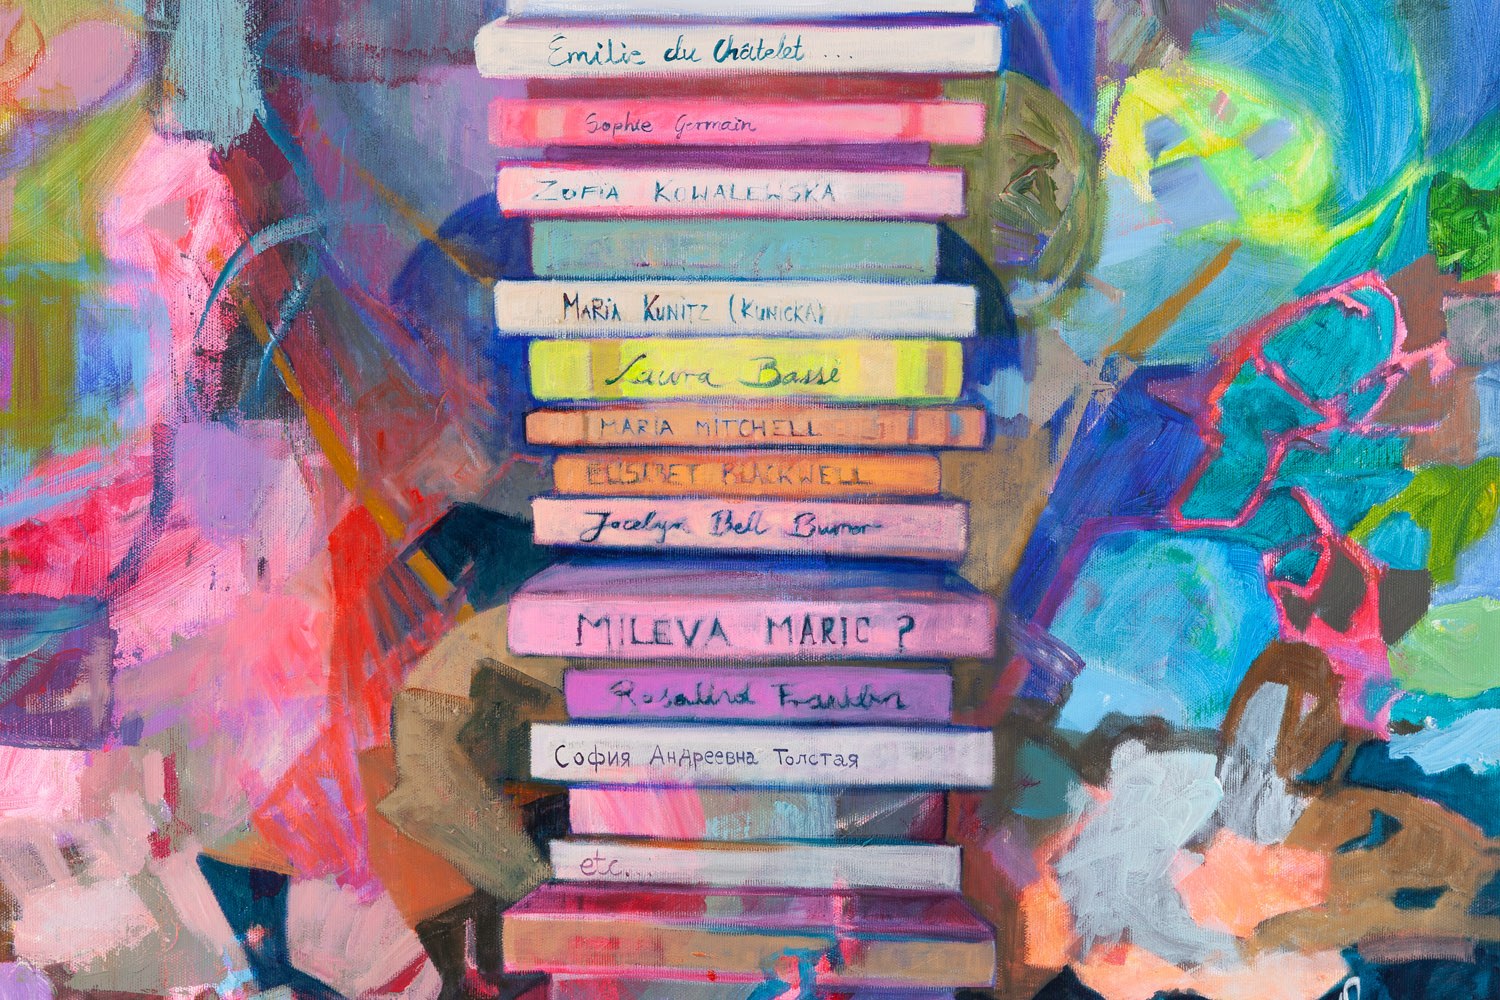 Émilie du Châtelet ...
Sophie Germain
ZOFIA KOWALEWSKA
MARIA KUNITZ (KUNICKA)
Laura Bassi
MARIA MITCHELL
ELISIBET BLACKWELL
Jocelyn Bell Burner
MILEVA MARIC ?
Rosalind Franklin
София Андреевна Толстая
etc...